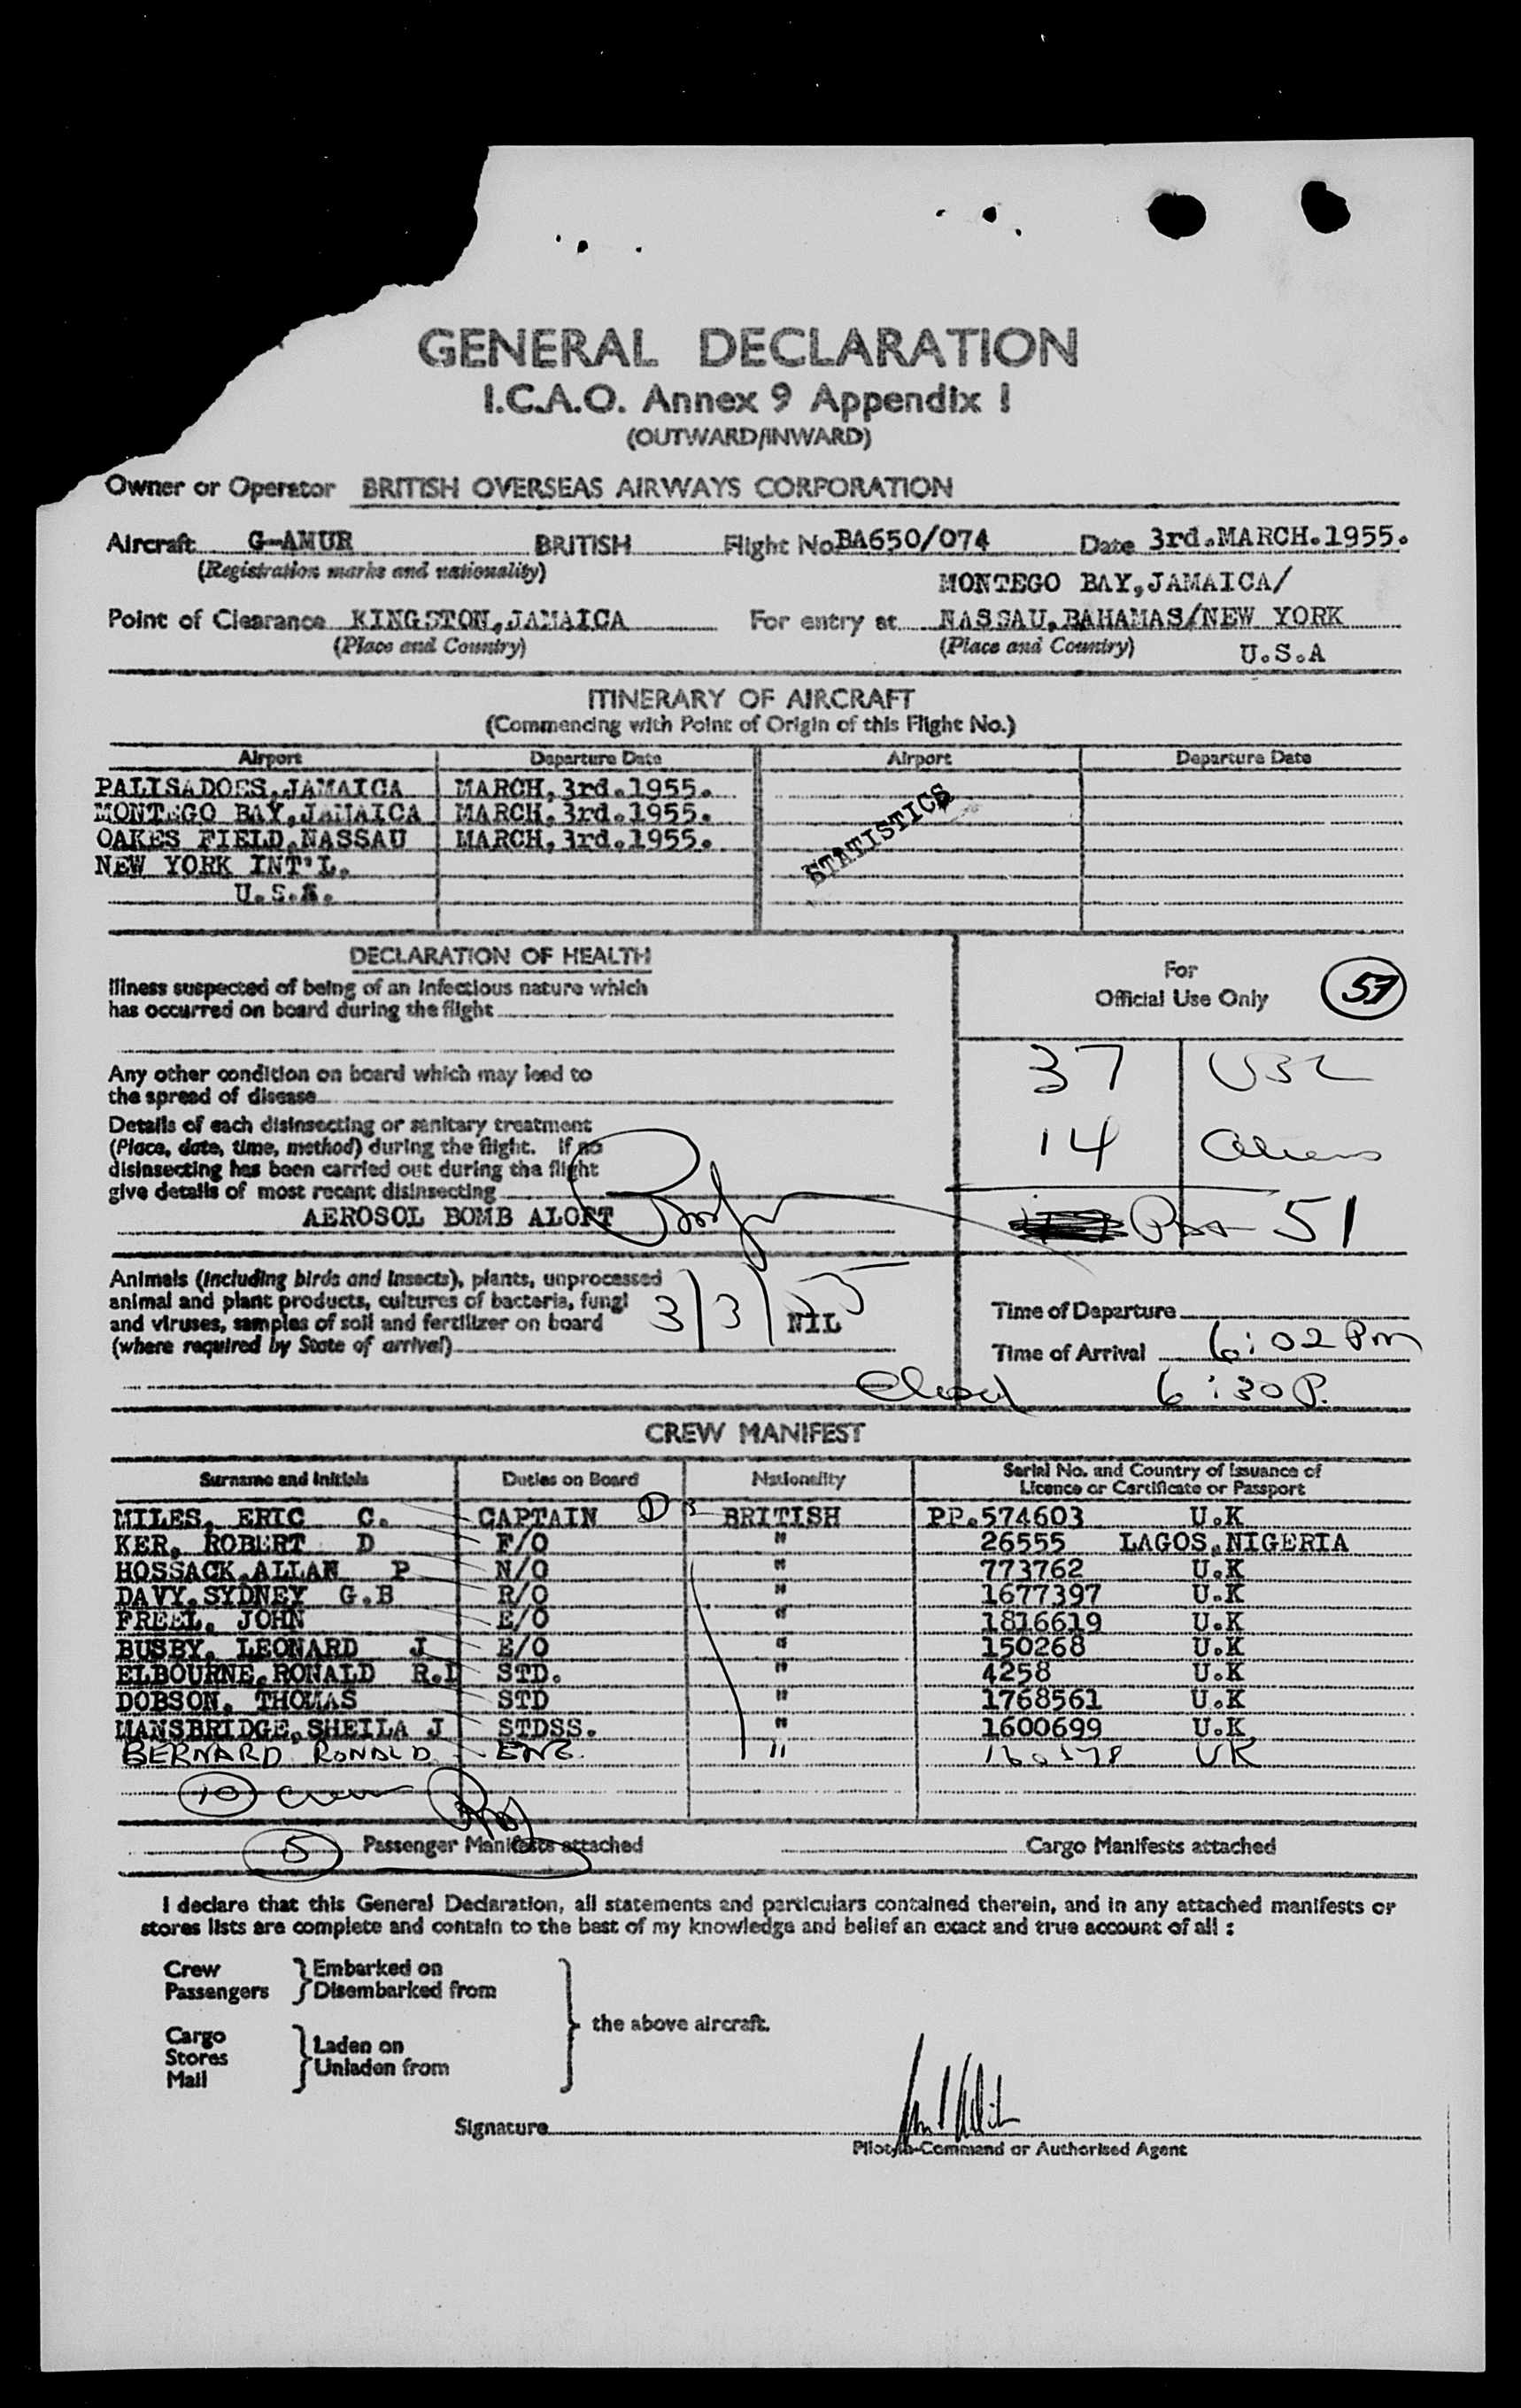 GENERAL DECLARATION
I.C.A.O. Annex 9 Appendix 1
(OUTWARD/INWARD)
Owner or Operator BRITISH OVERSEAS AIRWAYS CORPORATION
Aircraft G-AMUR BRITISH Flight No. BA650/074 Date 3rd.MARCH.1955.
(Registration marks and nationality)
MONTEGO BAY,JAMAICA/
Point of Clearance KINGSTON,JAMAICA For entry at NASSAU,BAHAMAS/NEW YORK
(Place and Country) (Place and Country) U.S.A
ITINERARY OF AIRCRAFT
(Commencing with Point of Origin of this Flight No.)
Airport Departure Date Airport Departure Date
PALISADOES,JAMAICA MARCH,3rd.1955.
MONTEGO BAY,JAMAICA MARCH,3rd.1955.
OAKES FIELD,NASSAU MARCH,3rd.1955.
NEW YORK INT'L.
U.S.A.
STATISTICS
DECLARATION OF HEALTH
Illness suspected of being of an infectious nature which
has occurred on board during the flight
Any other condition on board which may lead to
the spread of disease
Details of each disinsecting or sanitary treatment
(Place, date, time, method) during the flight. If no
disinsecting has been carried out during the flight
give details of most recent disinsecting
AEROSOL BOMB ALOFT
For
Official Use Only
37 USC
14 Aliens
51
Animals (including birds and insects), plants, unprocessed
animal and plant products, cultures of bacteria, fungi
and viruses, samples of soil and fertilizer on board
(where required by State of arrival)
3/3/55
NIL
Time of Departure
Time of Arrival 6:02 PM
6:30 P.
CREW MANIFEST
Surname and Initials Duties on Board Nationality Serial No. and Country of Issuance of
Licence or Certificate or Passport
MILES, ERIC C. CAPTAIN BRITISH PP.574603 U.K
KER, ROBERT D F/O " 26555 LAGOS,NIGERIA
HOSSACK,ALLAN P N/O " 773762 U.K
DAVY,SYDNEY G.B R/O " 1677397 U.K
FREEL, JOHN E/O " 1816619 U.K
BUSBY, LEONARD J E/O " 150268 U.K
ELBOURNE,RONALD R.D STD. " 4258 U.K
DOBSON, THOMAS STD " 1768561 U.K
MANSBRIDGE,SHEILA J STDSS. " 1600699 U.K
BERNARD RONALD ENG. " UK
10 crew
5 Passenger Manifests attached Cargo Manifests attached
I declare that this General Declaration, all statements and particulars contained therein, and in any attached manifests or
stores lists are complete and contain to the best of my knowledge and belief an exact and true account of all :
Crew Embarked on
Passengers Disembarked from
the above aircraft.
Cargo
Stores Laden on
Mail Unladen from
Signature
Pilot-in-Command or Authorised Agent